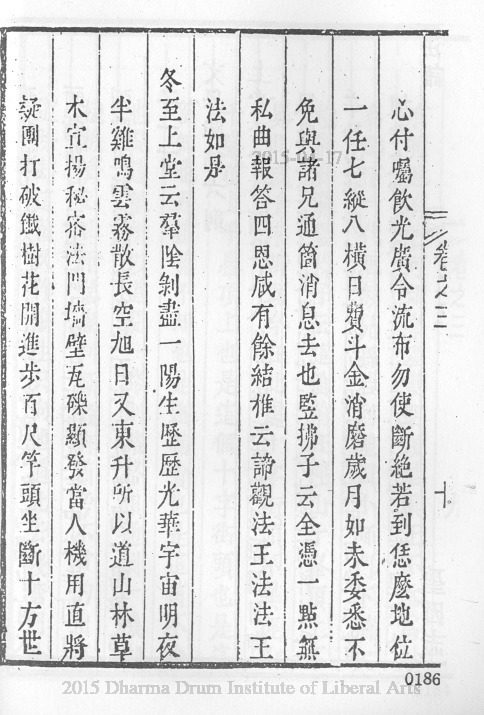 心付囑飲光廣令流布勿使斷絕若到恁麼地位
一任七縱八橫日費斗金消磨歲月如未委悉不
免與諸兄通箇消息去也豎拂子云全憑一點無
私曲報答四恩咸有餘結椎云諦觀法王法法王
法如是
冬至上堂云羣陰剝盡一陽生歷歷光華宇宙明夜
半雞鳴雲霧散長空旭日又東升所以道山林草
木宣揚秘密法門墻壁瓦礫顯發當人機用直將
疑團打破鐵樹花開進步百尺竿頭坐斷十方世
卷之三
十
2015-04-17
0186
2015 Dharma Drum Institute of Liberal Arts